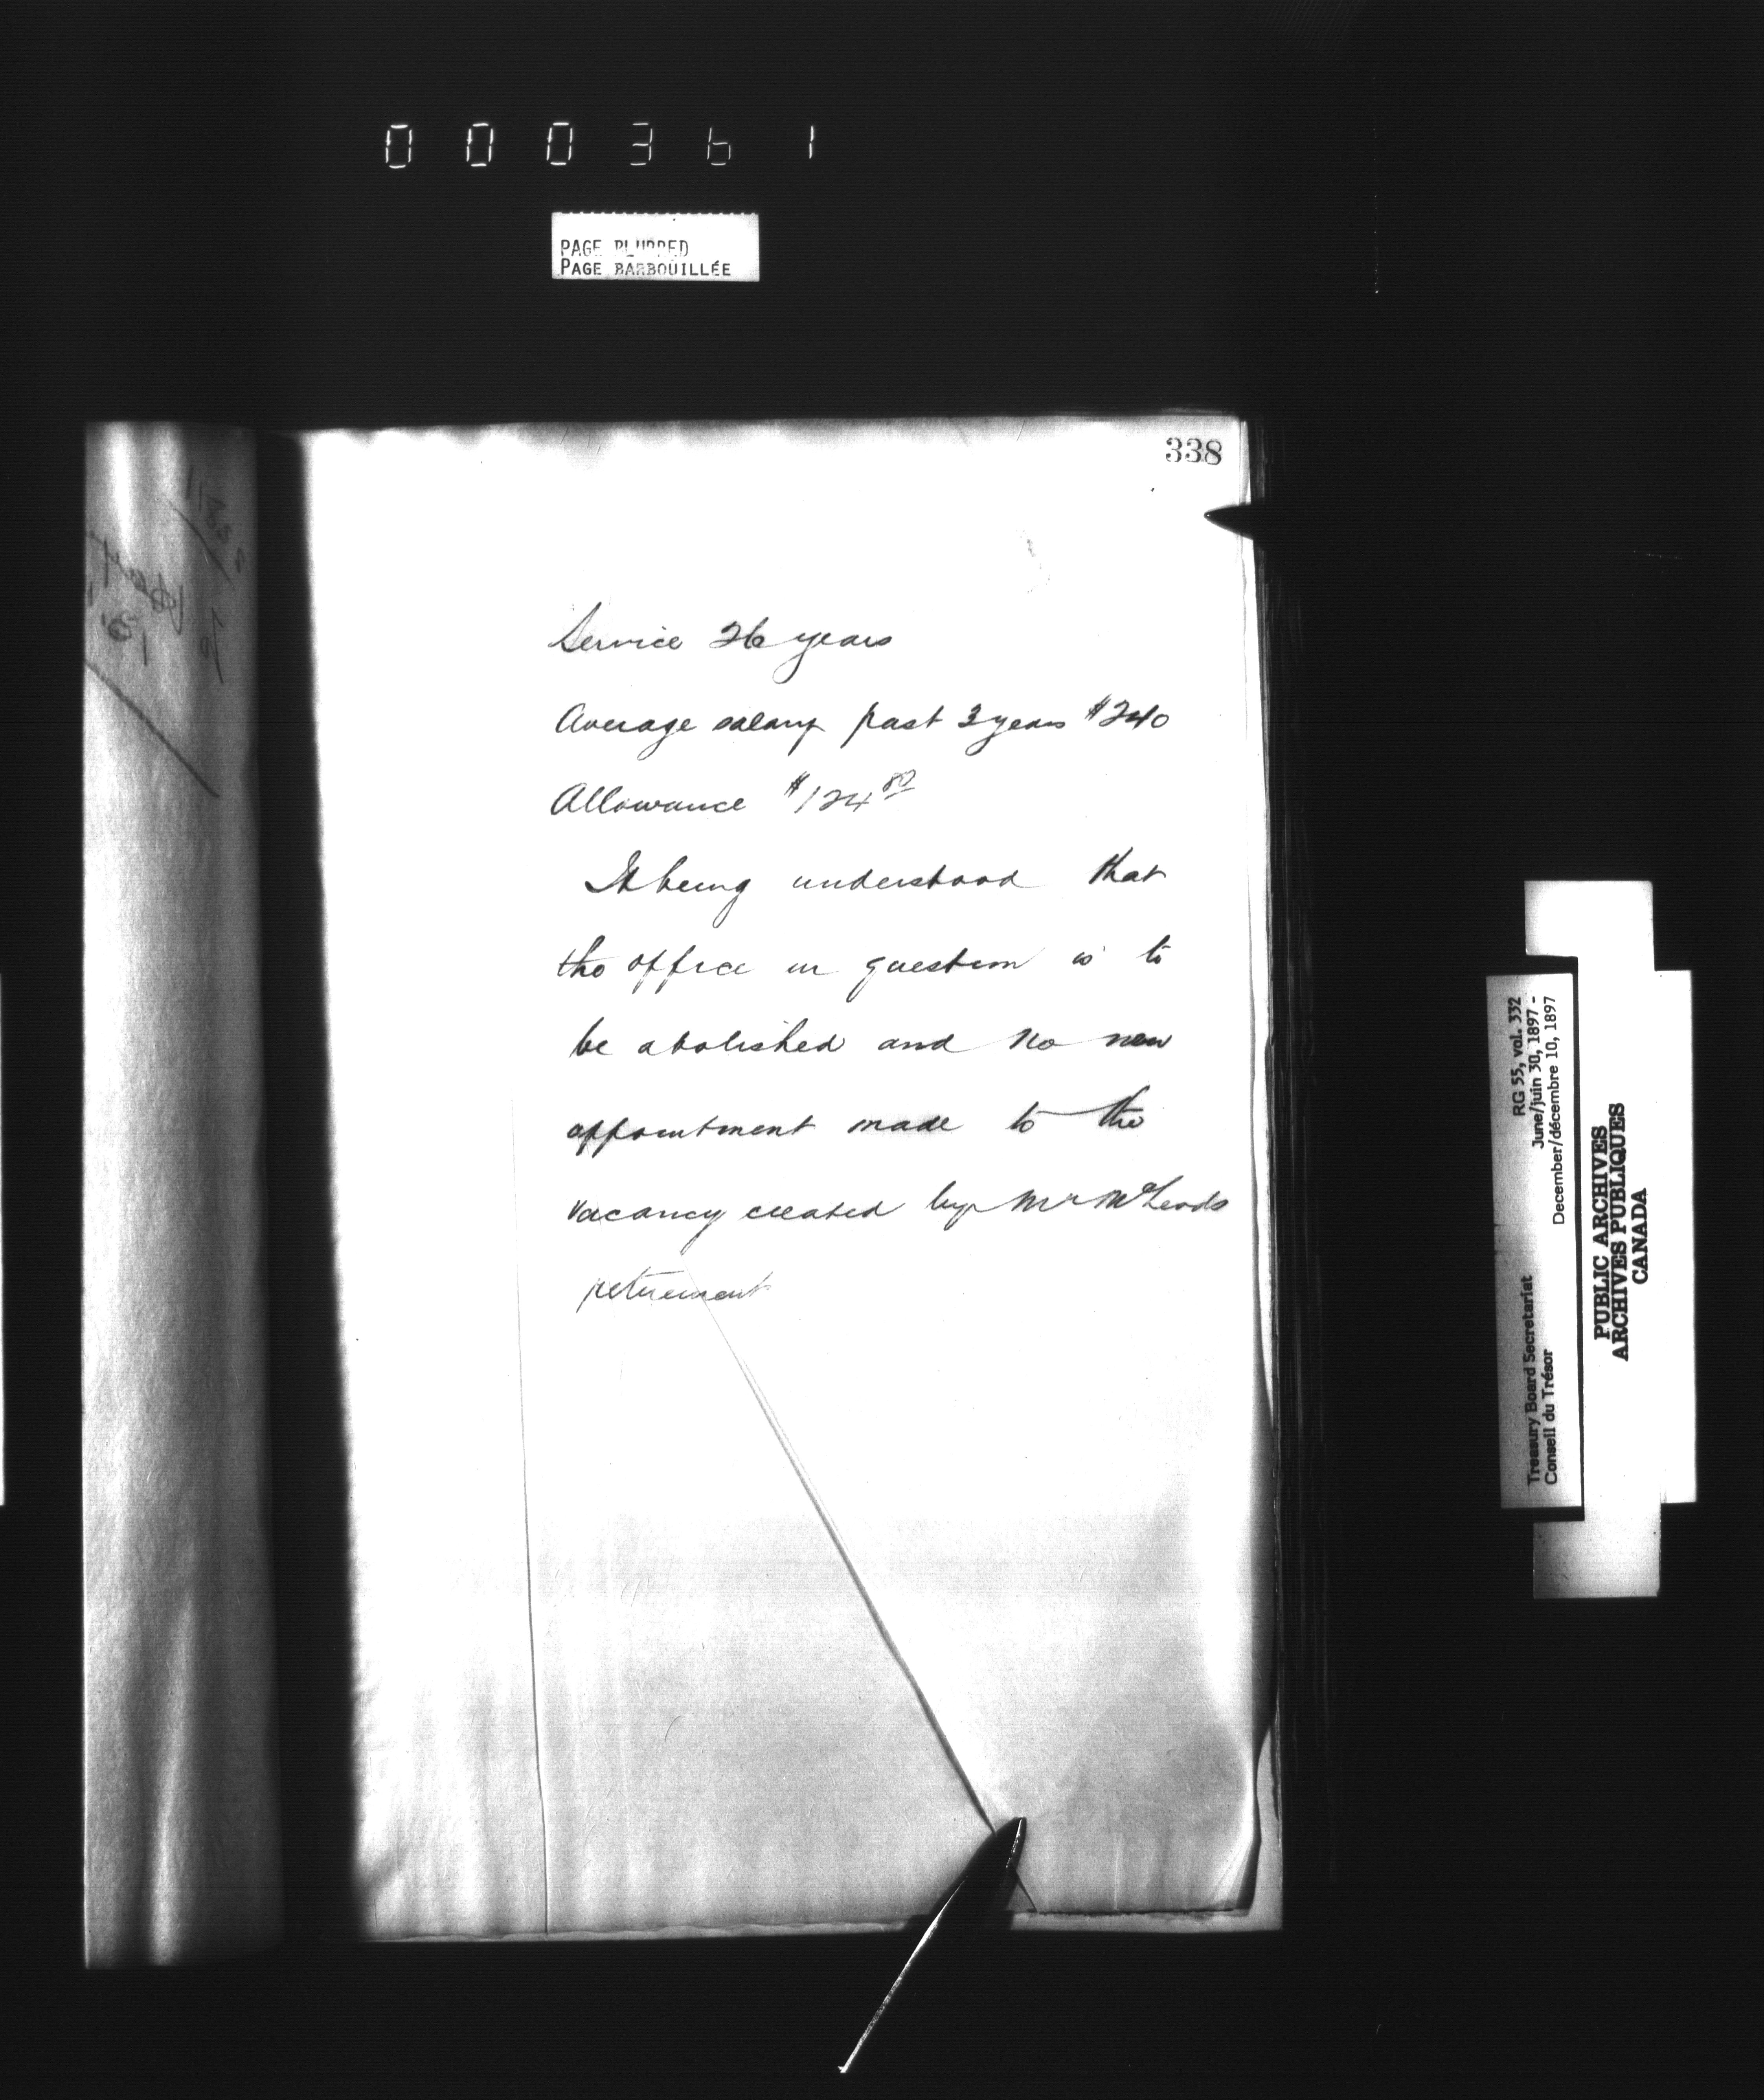 000361
PAGE BLURRED
PAGE BARBOUILLÉE
338
Service 26 years
Average salary past 3 years $240
Allowance $124 80
It being understood that
the office in question is to
be abolished and no new
appointment made to the
vacancy created by Mr McLeods
retirement
RG 55, vol. 332
June/juin 30, 1897 -
December/décembre 10, 1897
Treasury Board Secretariat
Conseil du Trésor
PUBLIC ARCHIVES
ARCHIVES PUBLIQUES
CANADA